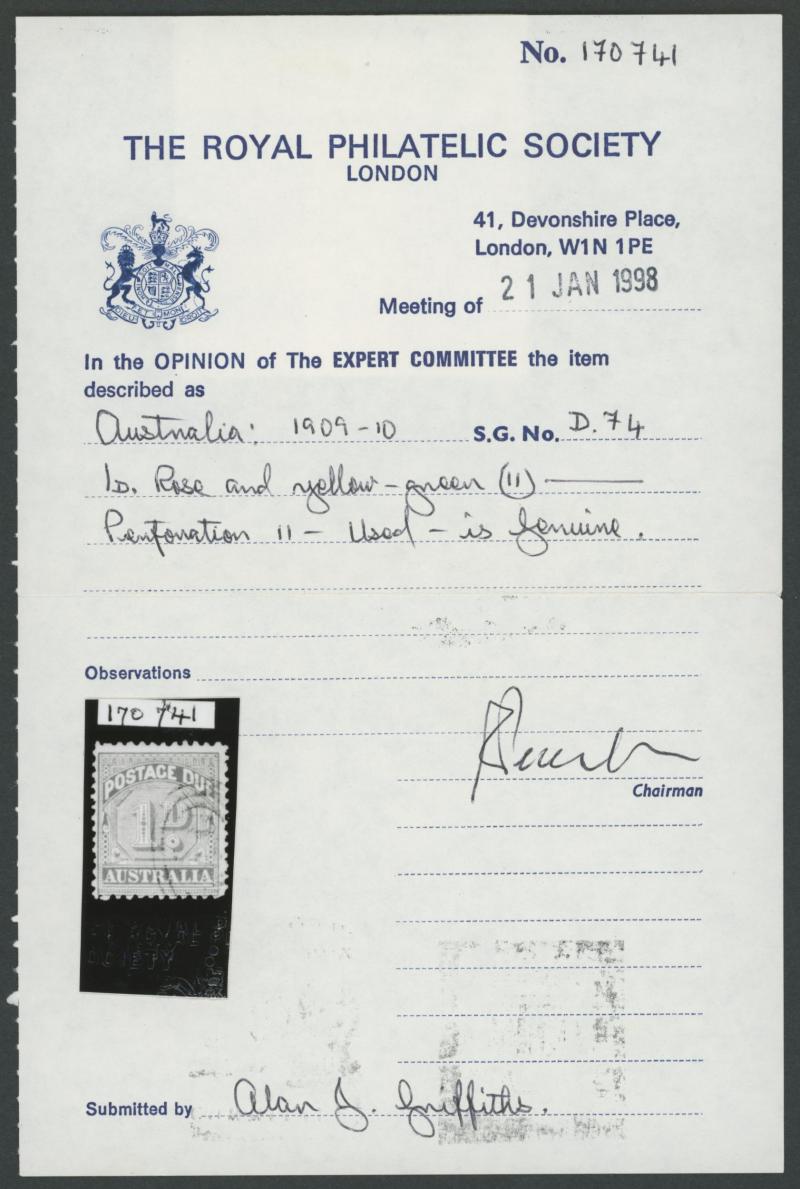 No. 170741
THE ROYAL PHILATELIC SOCIETY
LONDON
41, Devonshire Place,
London, W1N 1PE
Meeting of 21 JAN 1998
In the OPINION of The EXPERT COMMITTEE the item
described as
Australia: 1909-10 S.G. No. D.74
1D. Rose and yellow-green (II)
Perforation 11 - Used - is genuine.
Observations
170741
POSTAGE DUE
1D.
AUSTRALIA
ROYAL
SOCIETY
Chairman
Submitted by Alan J. Griffiths.